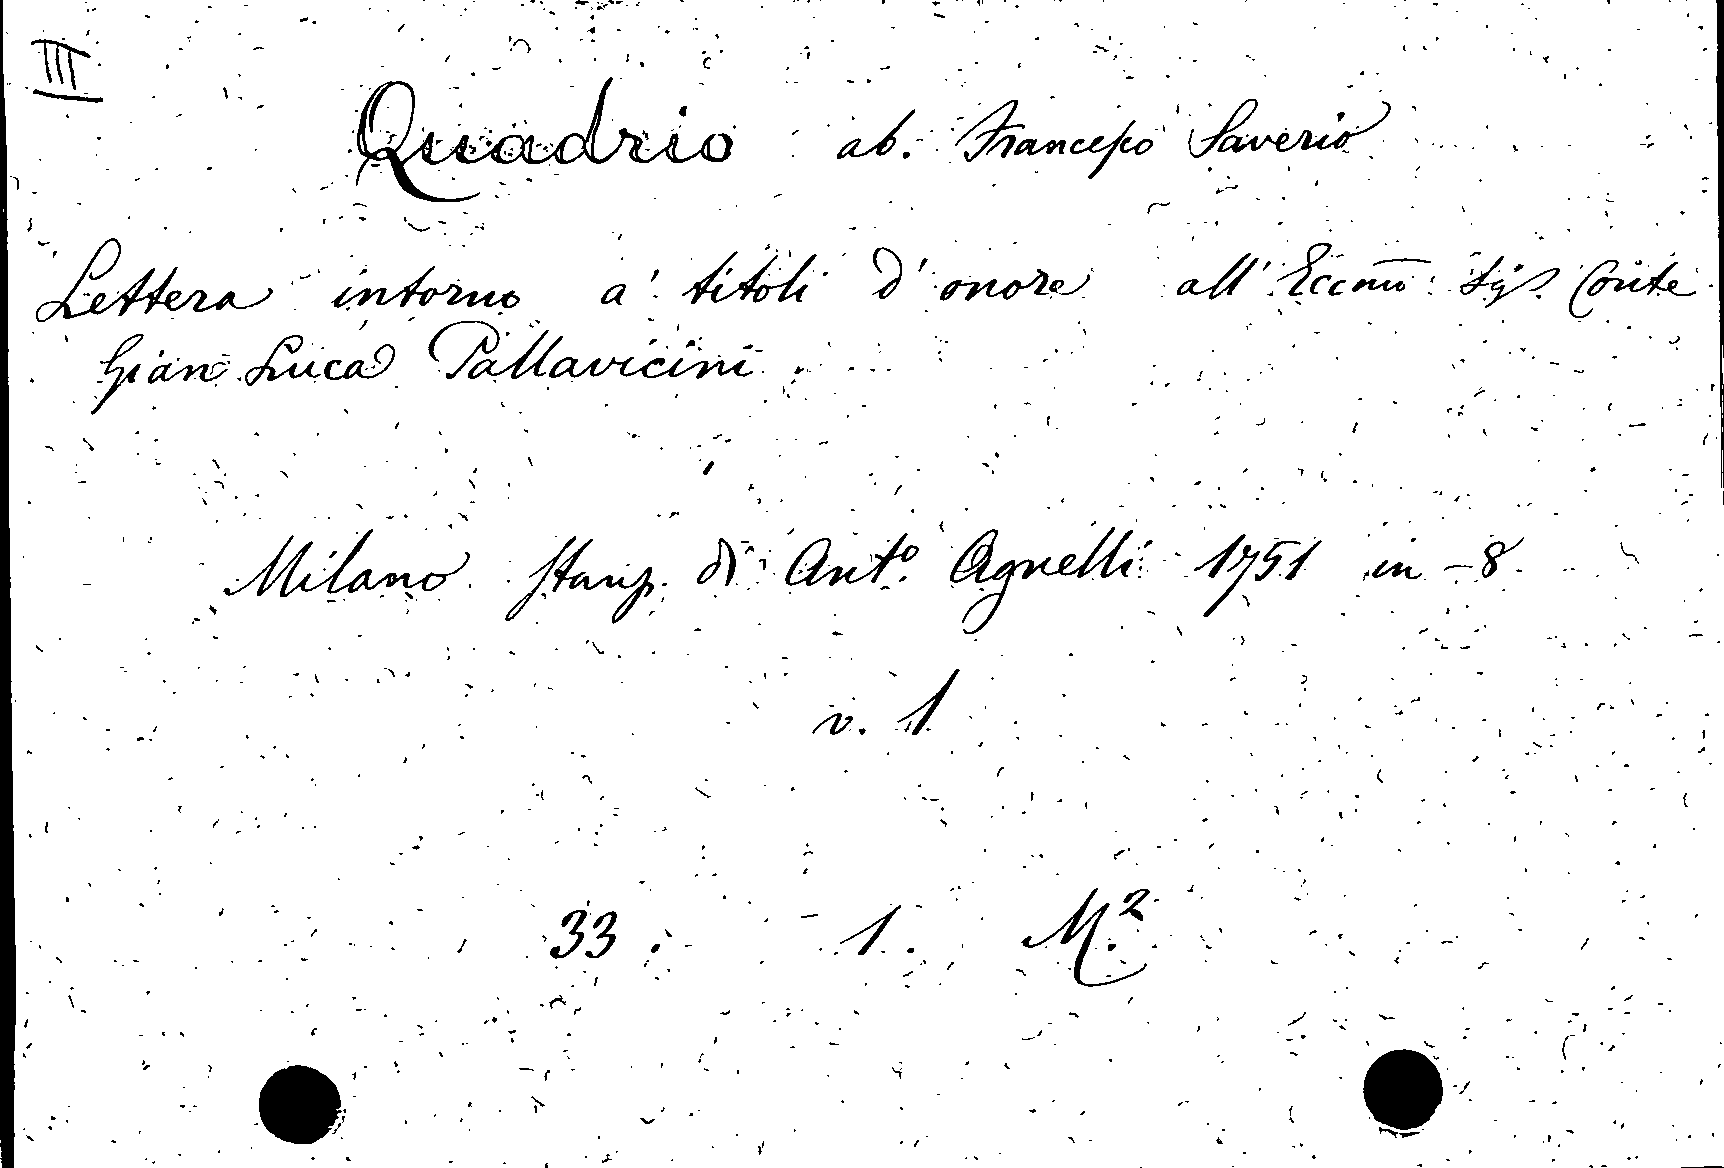 III
Quadrio ab. Francesco Saverio
Lettera intorno a' titoli d'onore all' Eccmo Sig. Conte
Gian Luca Pallavicini
Milano Stamp. di Ant.o Agnelli 1751 in-8
v. 1
33. 1. M.2